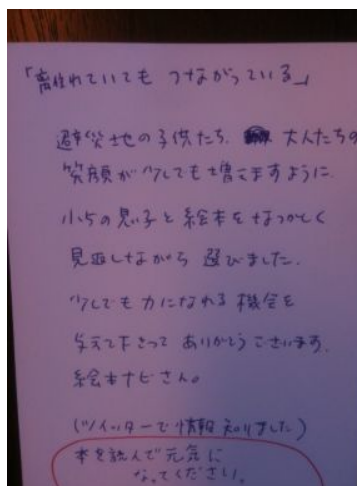 「離れていても つながっている」
避災地の子供たち、大人たちの
笑顔が少しでも増えますように.
小5の息子と絵本をなつかしく
見返しながら 選びました.
少しでも力になれる機会を
与えて下さって ありがとうございます.
絵本ナビさん。
(ツイッターで情報知りました)
本を読んで元気に
なってください。